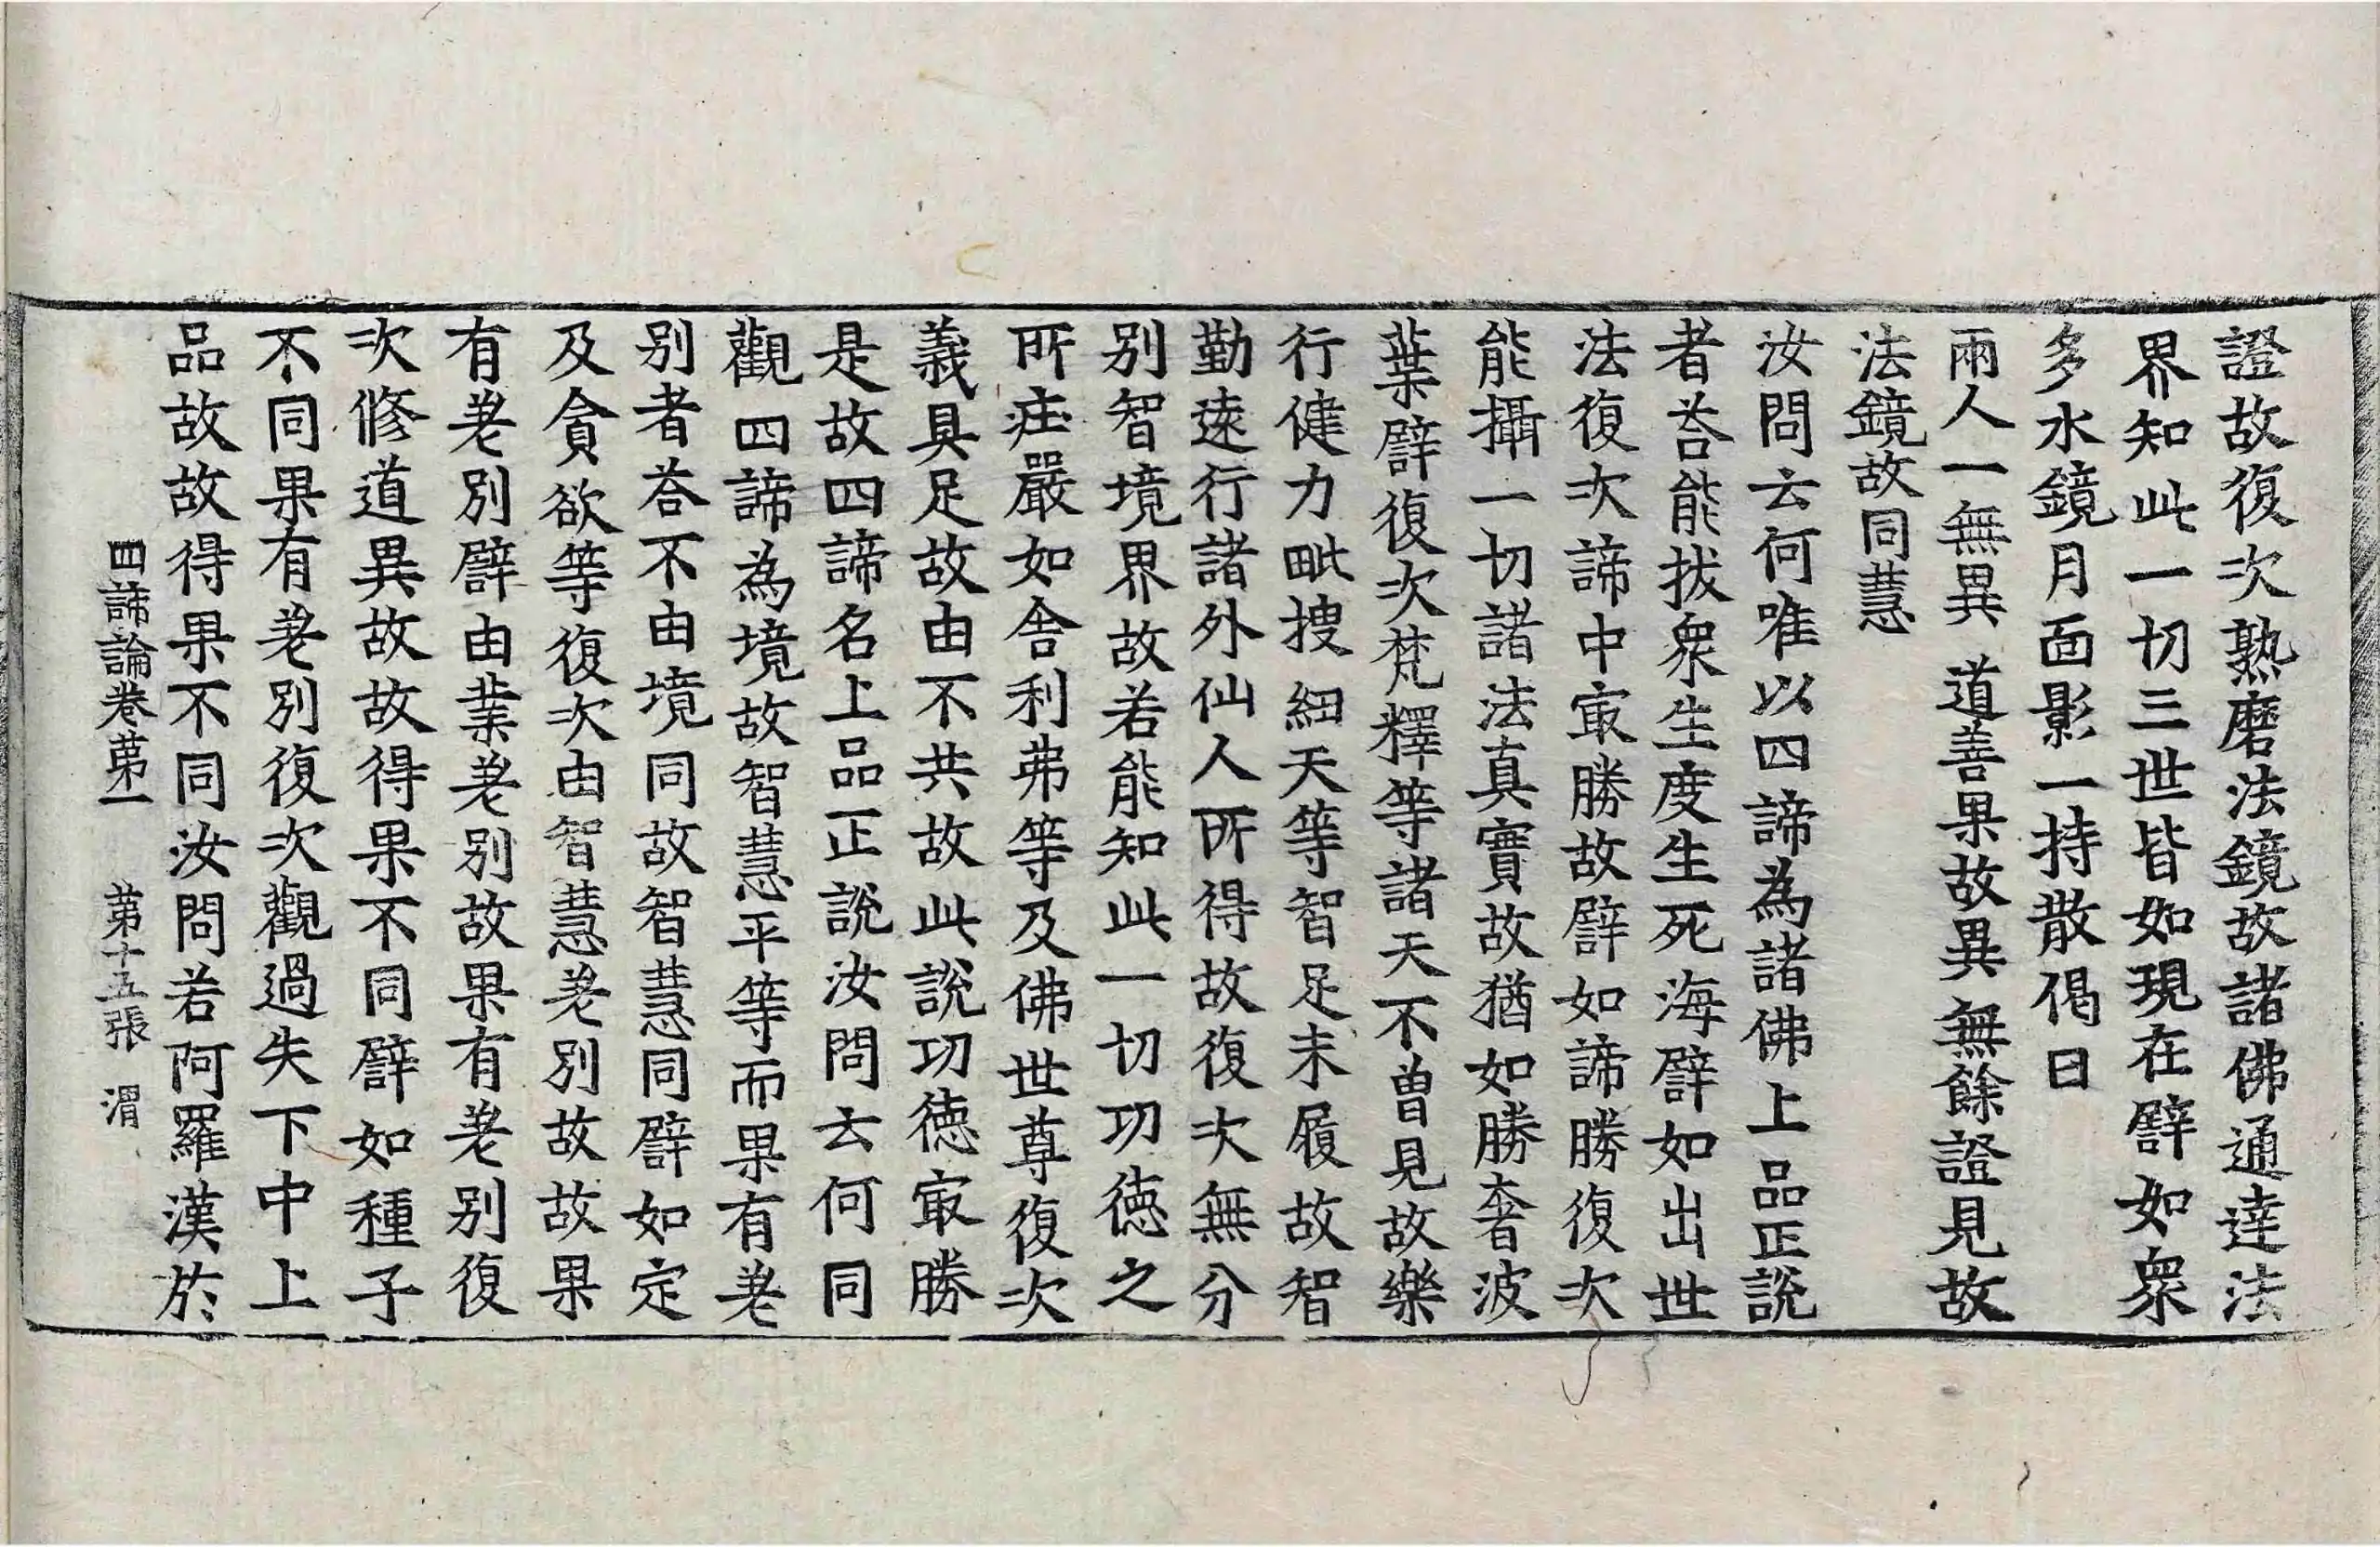 證故復次熟磨法鏡故諸佛通達法
界知此一切三世皆如現在譬如衆
多水鏡月面影一持散偈曰
兩人一無異 道善果故異無餘證見故
法鏡故同慧
汝問云何唯以四諦為諸佛上品正說
者荅能拔衆生度生死海譬如出世
法復次諦中冣勝故譬如諦勝復次
能攝一切諸法真實故猶如勝奢波
葉譬復次梵釋等諸天不曾見故樂
行健力毗搜紐天等智足未履故智
勤遠行諸外仙人所得故復次無分
別智境界故若能知此一切功徳之
所莊嚴如舍利弗等及佛世尊復次
義具足故由不共故此說功徳冣勝
是故四諦名上品正說汝問云何同
觀四諦為境故智慧平等而果有差
別者荅不由境同故智慧同譬如定
及貪欲等復次由智慧差別故故果
有差別譬由業差別故果有差別復
次修道異故故得果不同譬如種子
不同果有差別復次觀過失下中上
品故故得果不同汝問若阿羅漢於
四諦論卷苐一 苐十五張 渭